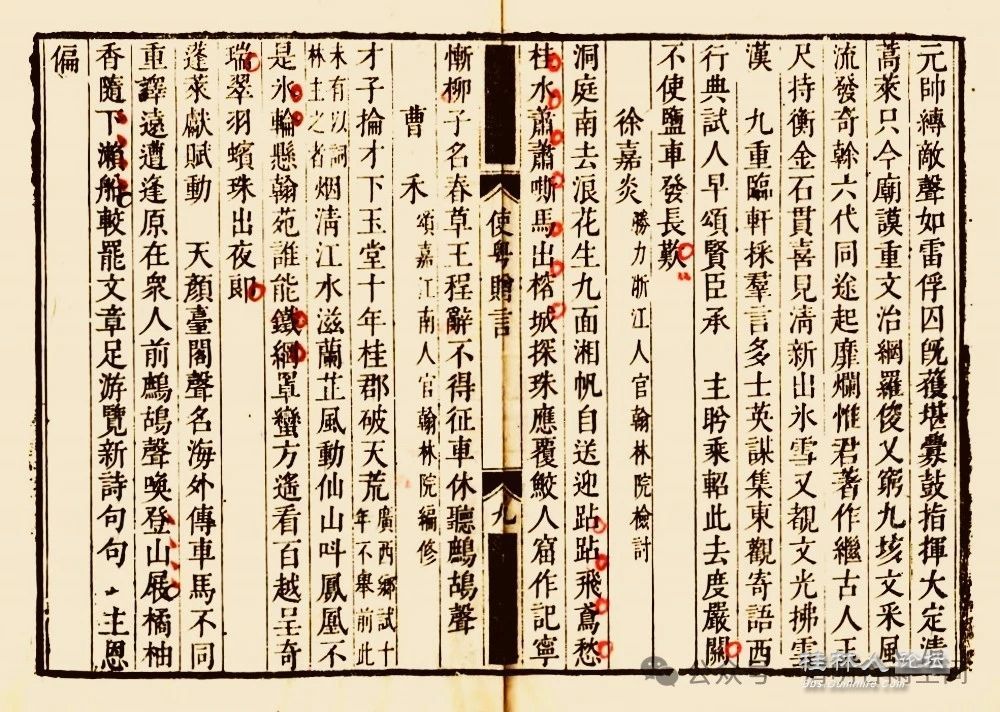 元帥縛敵聲如雷俘囚旣獲堪釁鼓指揮大定清
蒿萊只今廟謨重文治網羅俊乂窮九垓文采風
流發奇幹六代同途起靡爛惟君著作繼古人玉
尺持衡金石貫喜見清新出氷雪又覩文光拂雲
漢　九重臨軒採羣言多士英謀集東觀寄語西
行典試人早頌賢臣承　主盻乘軺此去度嚴關
不使鹽車發長歎
徐嘉炎 勝力浙江人官翰林院檢討
洞庭南去浪花生九面湘帆自送迎跕跕飛鳶愁
桂水蕭蕭嘶馬出榕城探珠應覆鮫人窟作記寧
慚柳子名春草王程辭不得征車休聽鷓鴣聲
使粵贈言
九
曹　禾 頌嘉江南人官翰林院編修
才子掄才下玉堂十年桂郡破天荒 廣西鄉試十年不舉前此
未有以詞林主之者 烟淸江水滋蘭芷風動仙山呌鳳凰不
是氷輪懸翰苑誰能鐵網罩蠻方遙看百越呈奇
瑞翠羽蠙珠出夜郎
蓬萊獻賦動　天顔臺閣聲名海外傳車馬不同
重譯遠遭逢原在衆人前鷓鴣聲喚登山屐橘柚
香隨下瀨船較罷文章足游覽新詩句句　主恩
偏
公众号
桂林人论坛